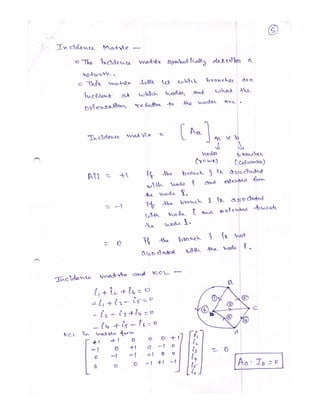 5
Incidence Matrix —
o The incidence matrix symbolically describes a
network.
o This matrix tells us which branches are
incident at which nodes, and what the
orientations relative to the nodes are.
Incidence matrix = [Aa] n x b
nodes branches
(rows) (columns)
Aij = +1 if the branch j is associated
with node i and oriented from
the node i.
= -1 if the branch j is associated
with node i and oriented towards
the node i.
= 0 if the branch j is not
associated with the node i.
Incidence matrix and KCL —
i1 + i2 + i6 = 0
-i1 + i3 - i5 = 0
-i2 - i3 + i4 = 0
-i4 + i5 - i6 = 0
KCL in matrix form
+1 +1 0 0 0 +1
-1 0 +1 0 -1 0
0 -1 -1 +1 0 0
0 0 0 -1 +1 -1
i1
i2
i3
i4
i5
i6
= 0
Aa · Ib = 0